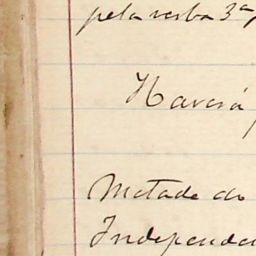 pela verba 3ª
Haverá
Metade do
Independen